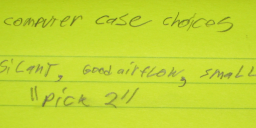 computer case choices
SiLANT, Good airflow, SMALL
"Pick 2"